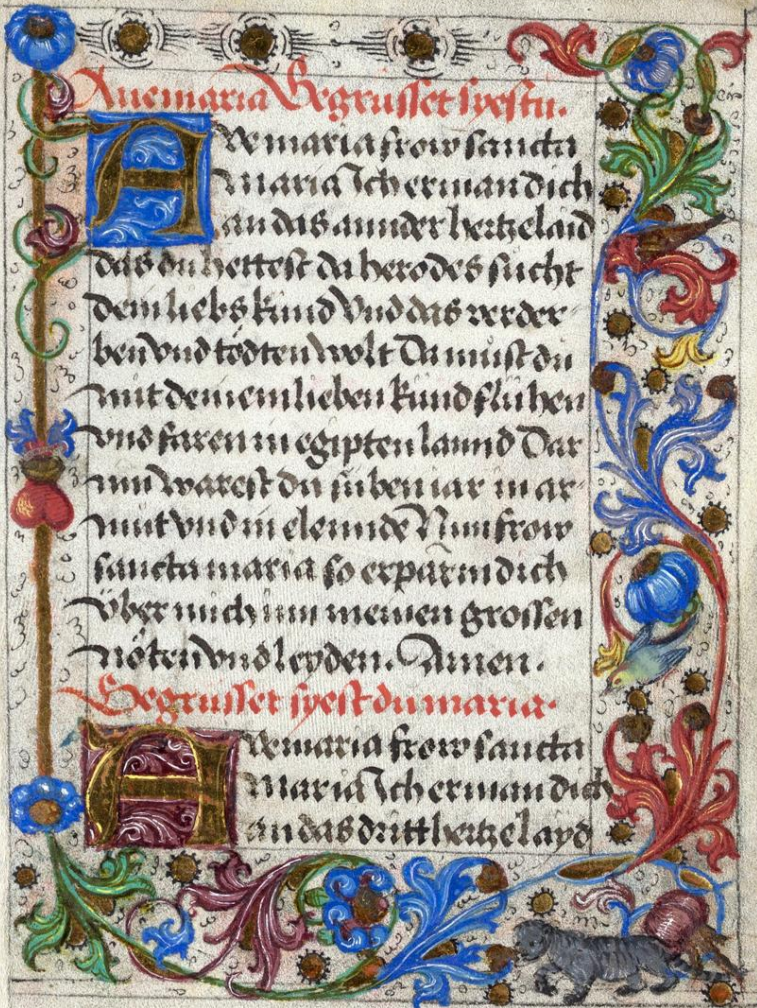 Aue maria Begrüsset syestu.
Ave maria frow sancta
Maria Ich erman dich
an das annder hertzelaid
das du hettest da herodes sücht
dein liebs kind Vnd das verder-
ben vnd tödten wolt Da must du
mit deinem lieben kind fliihen
vnd faren in egipten lannd Dar
inn warest du siben iar in ar-
mut vnd in elennde Nun frow
sancta maria so erparm dich
vber mich inn meinen grossen
nöten vnd leyden. Amen.
Begrüsset syest du maria.
Ave maria frow sancta
Maria Ich erman dich
an das dritt hertzelayd